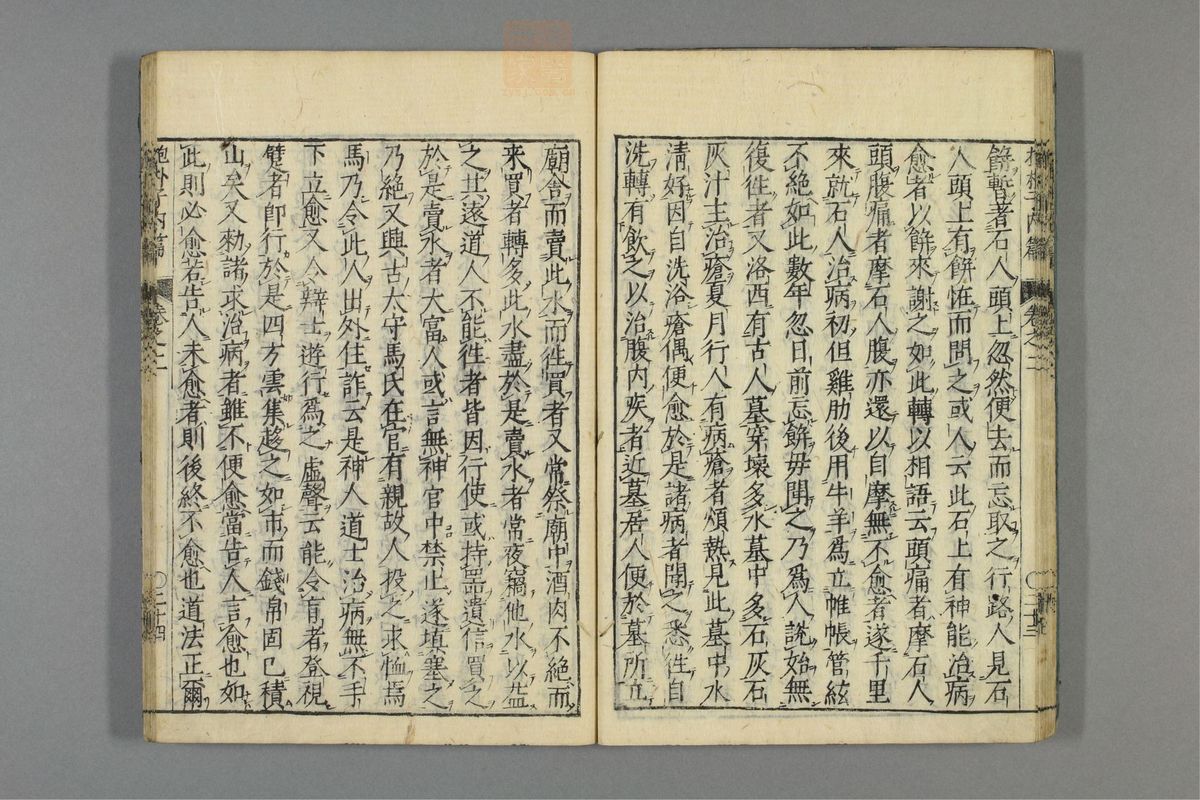 餅暫著石人頭上忽然便去而忘取之行路人見石
人頭上有餅恠而問之或人云此石上有神能治病
愈者以餅來謝之如此轉以相語云頭痛者摩石人
頭腹痛者摩石人腹亦還以自摩無不愈者遂千里
來就石人治病初但雞肋後用牛羊爲立帷帳管絃
不絶如此數年忽日前忘餅毋聞之乃爲人說始無
復徃者又洛西有古人墓穿壞多水墓中多石灰石
灰汁主治瘡夏月行人有病瘡者煩熱見此墓中水
清好因自洗浴瘡偶便愈於是諸病者聞之悉徃自
洗轉有飲之以治腹内疾者近墓居人便於墓所立
卷之二
二十三
廟舎而賣此水而徃買者又常祭廟中酒肉不絶而
來買者轉多此水盡於是賣水者常夜竊他水以益
之其遠道人不能徃者皆因行使或持噐遺信買之
於是賣水者大富人或言無神官中禁止遂填塞之
乃絶又興古太守馬氏在官有親故人投之求恤焉
馬乃令此人出外住詐云是神人道士治病無不手
下立愈又令辯士遊行爲之虛聲云能令盲者登視
躄者即行於是四方雲集趍之如市而錢帛固已積
山矣又勑諸求治病者雖不便愈當告人言愈也如
此則必愈若告人未愈者則後終不愈也道法正爾
抱朴子内篇
卷之二
二十四